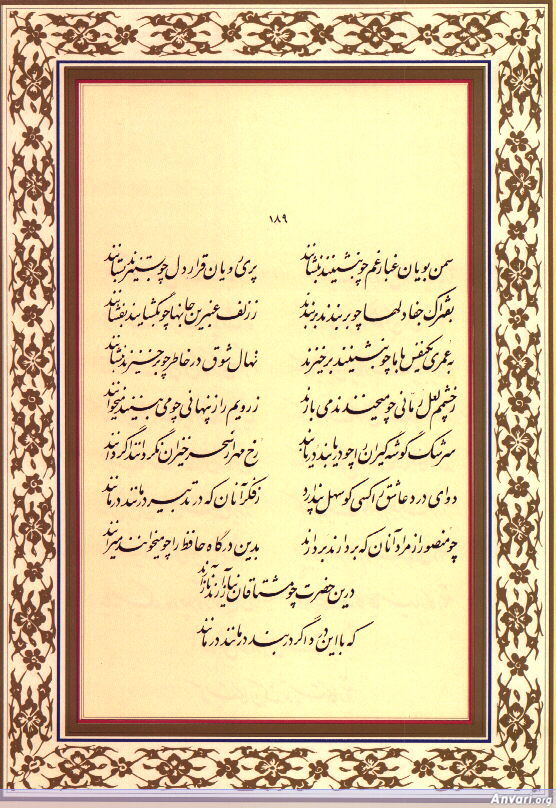 ۱۸۹
سمن بویان غبار غم چو بنشینند بنشانند پری رویان قرار دل چو بستیزند بستانند
بفتراک جفا دلها چو بربندند بربندند ز زلف عنبرین جانها چو بگشایند بفشانند
به عمری یک نفس با ما چو بنشینند برخیزند نهال شوق در خاطر چو برخیزند بنشانند
ز چشمم لعل رمانی چو میخندند می بارند ز رویم راز پنهانی چو می بینند میخوانند
سرشک گوشه گیران را چو دریابند در یابند رخ مهر از سحر خیزان نگردانند اگر دانند
دوای درد عاشق را کسی کو سهل پندارد ز فکر آنان که در تدبیر درمانند در مانند
چو منصور از مراد آنان که بردارند بر دارند بدین درگاه حافظ را چو میخوانند میرانند
درین حضرت چو مشتاقان نیاز آرند ناز آرند
که با این درد اگر دربند درمانند در مانند
Anvari.org